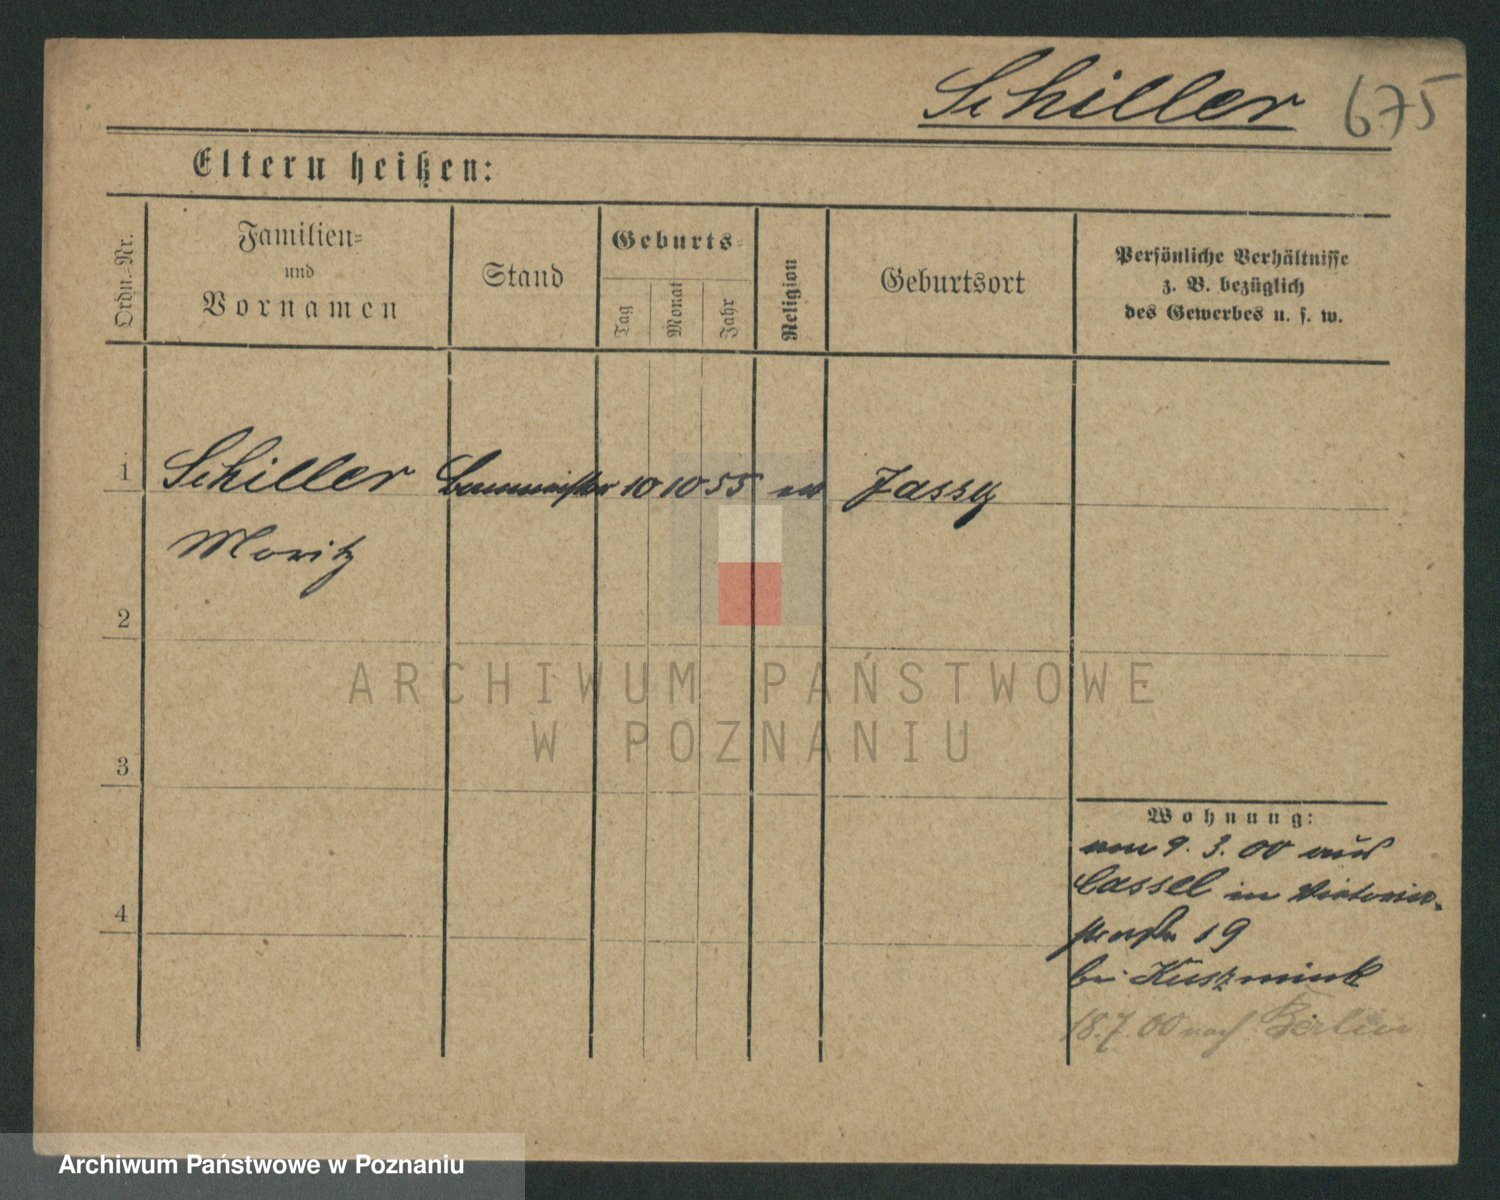 Schiller 675
Eltern heißen:
Ordn.-Nr.
Familien-
und
Vornamen
Stand
Geburts-
Tag
Monat
Jahr
Religion
Geburtsort
Persönliche Verhältnisse
z. B. bezüglich
des Gewerbes u. s. w.
1 Schiller Baumeister 10 10 55 ev Jassy
Moritz
2
3
4
Wohnung:
vom 9. 3. 00 aus
Cassel in Viktoria-
straße 19
bei Kuszmink
18.7.00 nach Berlin
ARCHIWUM PAŃSTWOWE
W POZNANIU
Archiwum Państwowe w Poznaniu